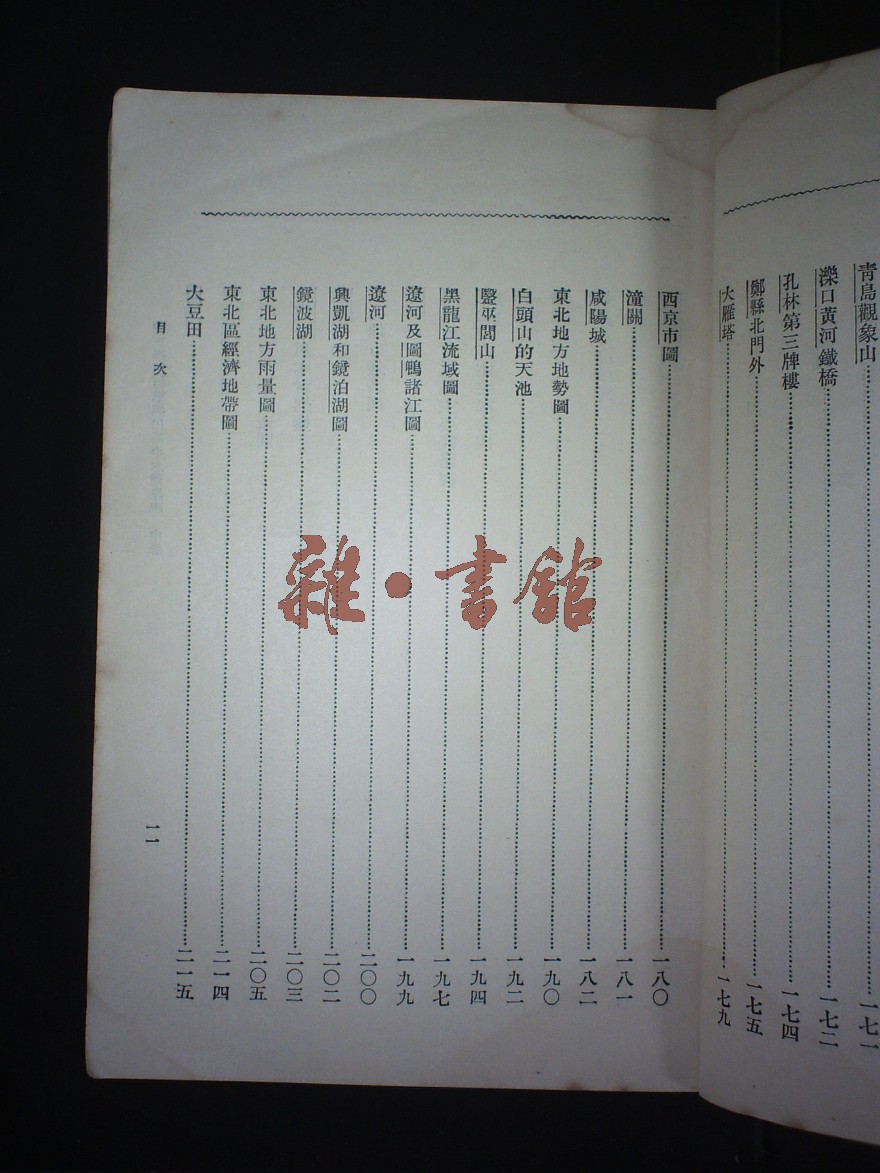 青島觀象山……一七一
濼口黃河鐵橋……一七二
孔林第三牌樓……一七四
鄭縣北門外……一七五
大雁塔……一七九
西京市圖……一八〇
潼關……一八一
咸陽城……一八二
東北地方地勢圖……一九〇
白頭山的天池……一九二
毉巫閭山……一九四
黑龍江流域圖……一九七
遼河及圖鴨諸江圖……一九九
遼河……二〇〇
興凱湖和鏡泊湖圖……二〇二
鏡波湖……二〇三
東北地方雨量圖……二〇五
東北區經濟地帶圖……二一四
大豆田……二一五
目次
一一
雜·書館